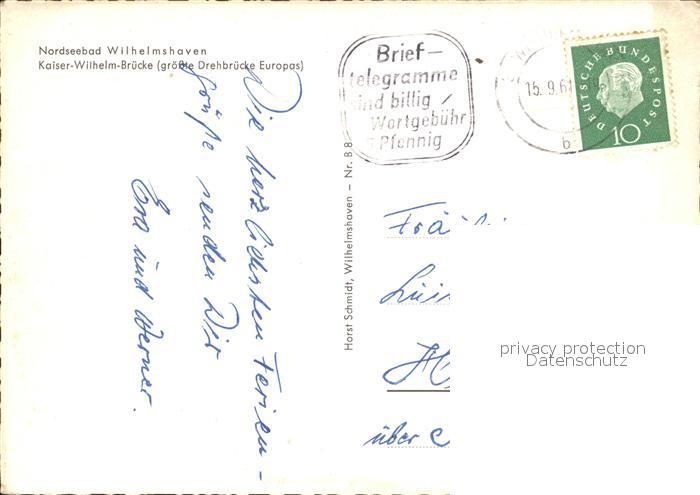 Nordseebad Wilhelmshaven
Kaiser-Wilhelm-Brücke (größte Drehbrücke Europas)
Die herzlichsten Ferien-
grüße senden Dir
Erna und Werner.
Horst Schmidt, Wilhelmshaven – Nr. B 8
Brief–
telegramme
sind billig
Wortgebühr
5 Pfennig
15.9.61
b
DEUTSCHE BUNDESPOST
10
über
privacy protection
Datenschutz